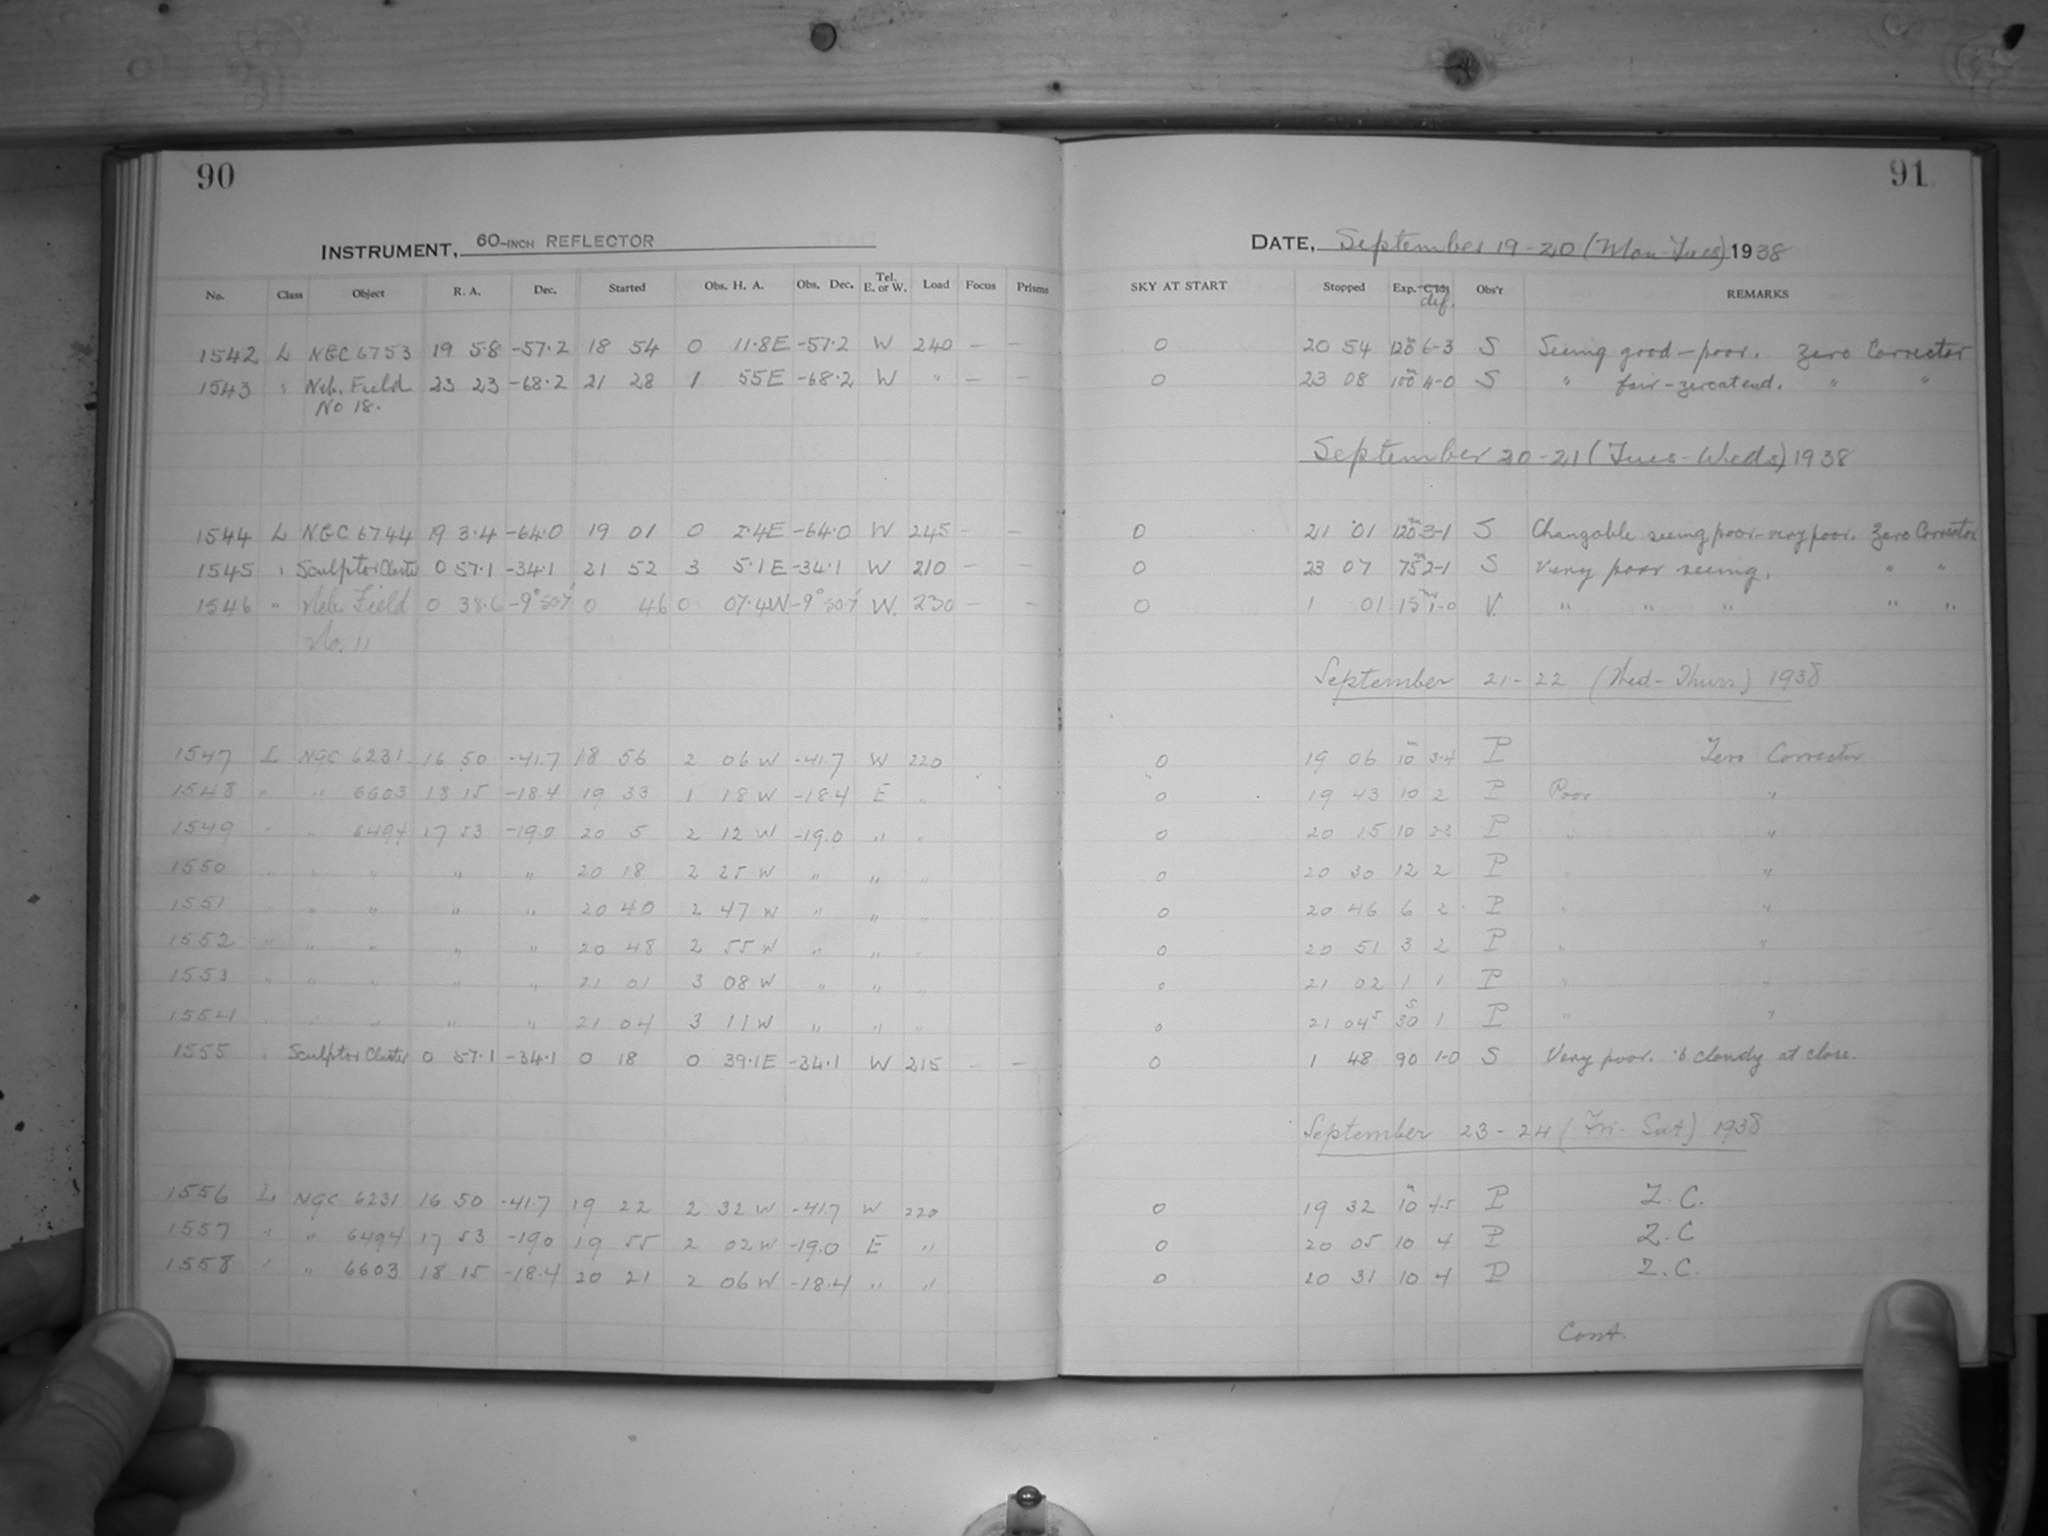 90
91
INSTRUMENT, 60-INCH REFLECTOR
DATE, September 19-20 (Mon-Tues) 1938
No. Class Object R. A. Dec. Started Obs. H. A. Obs. Dec. Tel. E. or W. Load Focus Prisms SKY AT START Stopped Exp. Clds def. Obs'r REMARKS
1542 L NGC 6753 19 5.8 -57.2 18 54 0 11.8E -57.2 W 240 - - 0 20 54 120m 6-3 S Seeing good - poor. Zero Corrector
1543 " Neb. Field 23 23 -68.2 21 28 1 55E -68.2 W " - - 0 23 08 100m 4-0 S " fair - zero at end. " "
No 18.
September 20-21 (Tues-Weds) 1938
1544 L NGC 6744 19 3.4 -64.0 19 01 0 2.4E -64.0 W 245 - - 0 21 01 120m 3-1 S Changable seeing poor - very poor. Zero Corrector
1545 " Sculptor Cluster 0 57.1 -34.1 21 52 3 5.1E -34.1 W 210 - - 0 23 07 75m 2-1 S Very poor seeing. " "
1546 " Neb. Field 0 38.6 -9° 50.4' 0 46 0 07.4W -9° 50.4' W. 230 - - 0 1 01 15m 1-0 V. " " " " "
No. 11
September 21-22 (Wed-Thurs) 1938
1547 L NGC 6231 16 50 -41.7 18 56 2 06 W -41.7 W 220 0 19 06 10m 3-4 P Zero Corrector
1548 " " 6603 18 15 -18.4 19 33 1 18 W -18.4 E " 0 19 43 10 2 P Poor "
1549 " " 6494 17 53 -19.0 20 5 2 12 W -19.0 " " 0 20 15 10 2-3 P " "
1550 " " " " " 20 18 2 25 W " " " 0 20 30 12 2 P " "
1551 " " " " " 20 40 2 47 W " " " 0 20 46 6 2 P " "
1552 " " " " " 20 48 2 55 W " " " 0 20 51 3 2 P " "
1553 " " " " " 21 01 3 08 W " " " 0 21 02 1 1 P " "
1554 " " " " " 21 04 3 11 W " " " 0 21 04.5 30s 1 P " "
1555 " Sculptor Cluster 0 57.1 -34.1 0 18 0 39.1E -34.1 W 215 - - 0 1 48 90 1-0 S Very poor. .6 cloudy at close.
September 23-24 (Fri-Sat) 1938
1556 L NGC 6231 16 50 -41.7 19 22 2 32 W -41.7 W 220 0 19 32 10m 4-5 P Z. C.
1557 " " 6494 17 53 -19.0 19 55 2 02 W -19.0 E " 0 20 05 10 4 P Z. C
1558 " " 6603 18 15 -18.4 20 21 2 06 W -18.4 " " 0 20 31 10 4 P Z. C.
Cont.